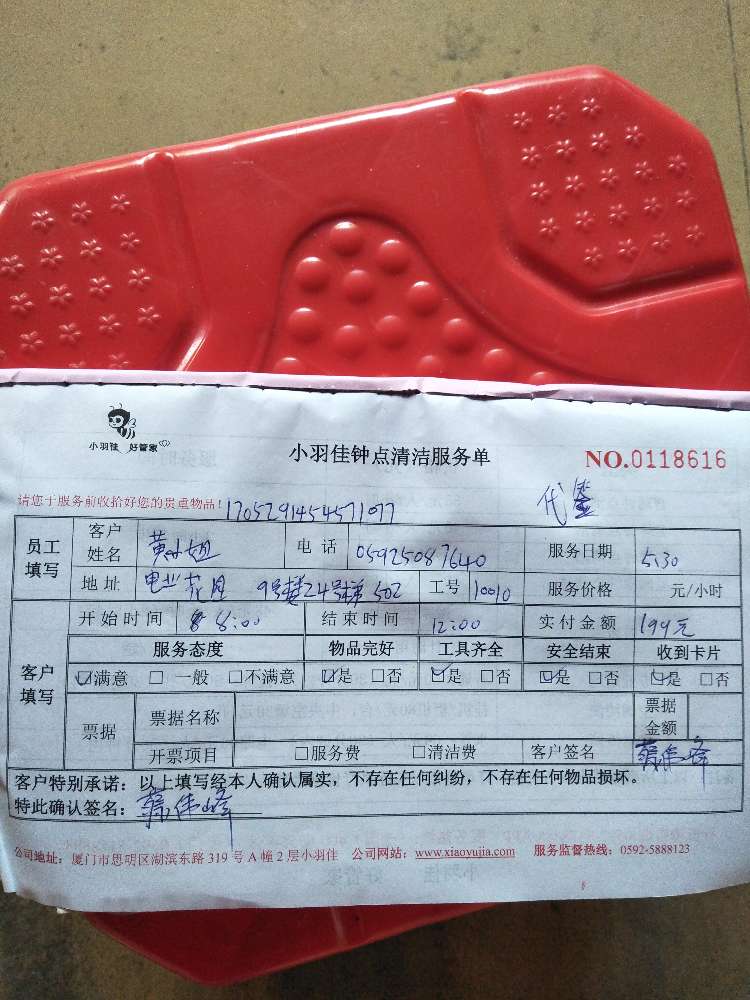 小羽佳 好管家
小羽佳钟点清洁服务单
NO.0118616
请您于服务前收拾好您的贵重物品!
1705291454571077
代签
员工填写 客户姓名 黄小姐 电话 05925087640 服务日期 5.30
地址 电业花园 9号楼24号梯502 工号 10010 服务价格 元/小时
客户填写 开始时间 8:00 结束时间 12:00 实付金额 199元
服务态度 物品完好 工具齐全 安全结束 收到卡片
☑满意 □一般 □不满意 ☑是 □否 ☑是 □否 ☑是 □否 ☑是 □否
票据 票据名称 票据金额
开票项目 □服务费 □清洁费 客户签名 伟峰
客户特别承诺:以上填写经本人确认属实,不存在任何纠纷,不存在任何物品损坏。
特此确认签名:伟峰
公司地址:厦门市思明区湖滨东路319号A幢2层小羽佳 公司网站:www.xiaoyujia.com 服务监督热线:0592-5888123